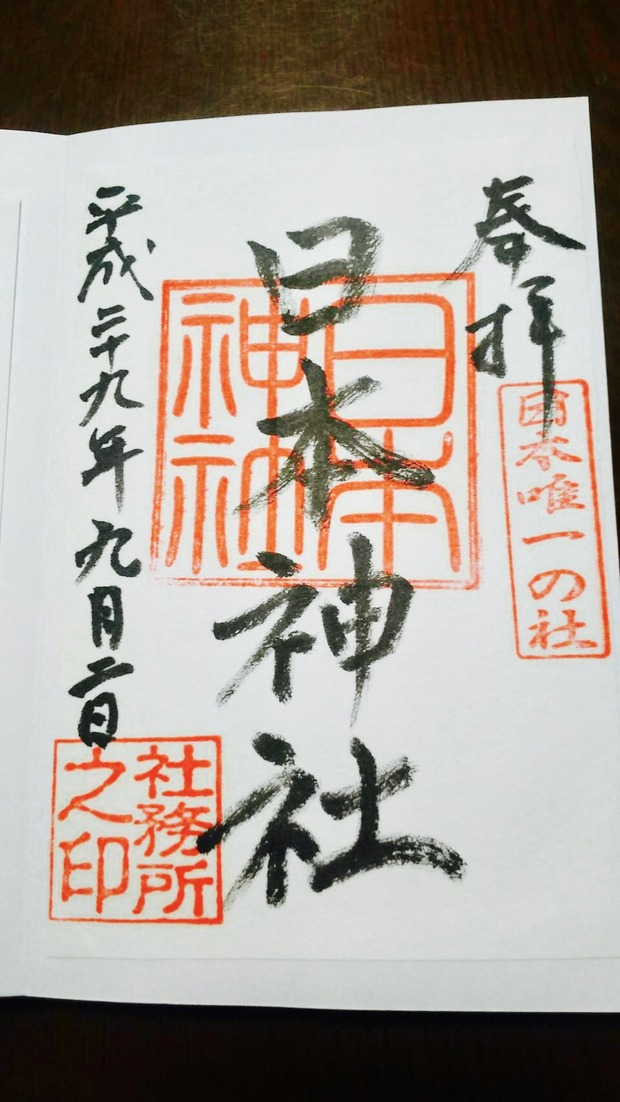 奉拝
日本唯一の社
日本神社
日本
神社
平成二十九年九月二日
社務所
之印